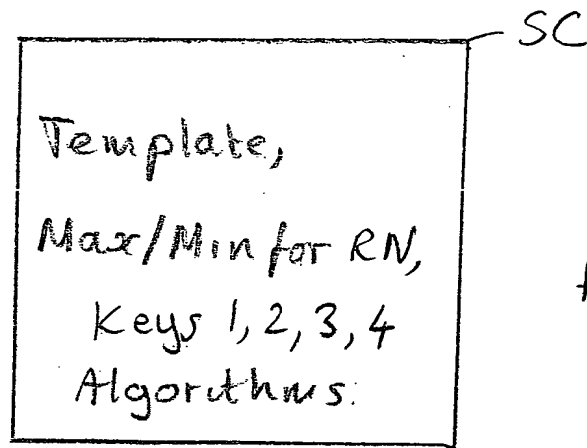 SC
Template,
Max/Min for RN,
Keys 1, 2, 3, 4
Algorithms.